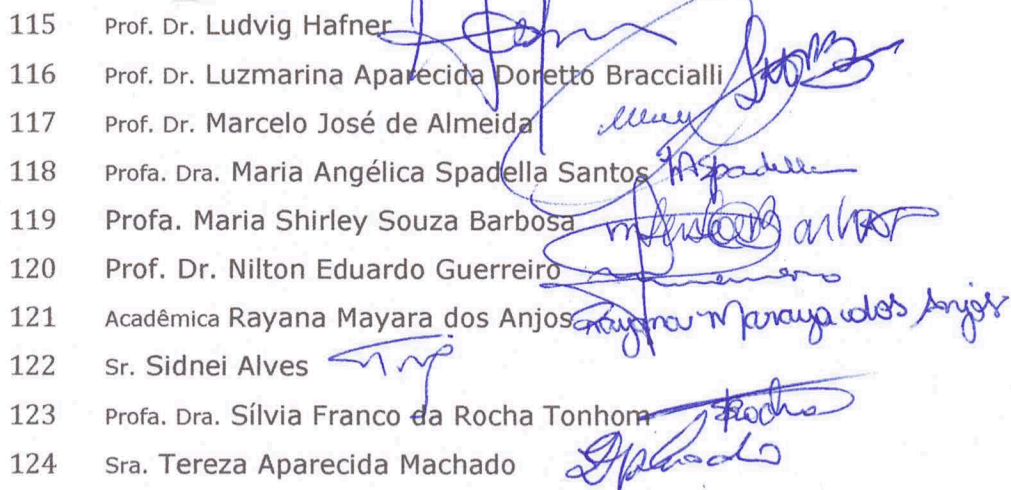 115 Prof. Dr. Ludvig Hafner
116 Prof. Dr. Luzmarina Aparecida Doretto Braccialli
117 Prof. Dr. Marcelo José de Almeida
118 Profa. Dra. Maria Angélica Spadella Santos MASpadella
119 Profa. Maria Shirley Souza Barbosa
120 Prof. Dr. Nilton Eduardo Guerreiro
121 Acadêmica Rayana Mayara dos Anjos Rayana Mayara dos Anjos
122 Sr. Sidnei Alves
123 Profa. Dra. Sílvia Franco da Rocha Tonhom Rocha
124 Sra. Tereza Aparecida Machado